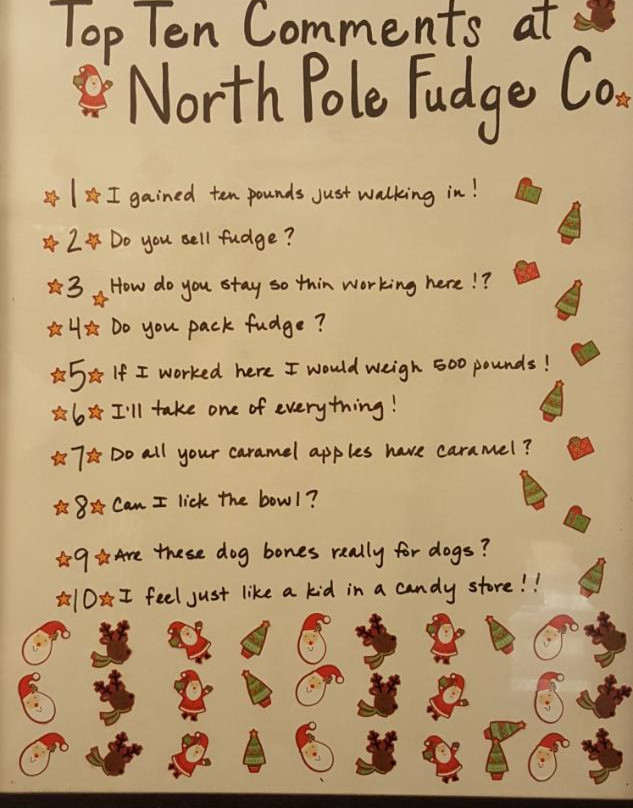 Top Ten Comments at
North Pole Fudge Co.
1 I gained ten pounds just walking in!
2 Do you sell fudge?
3 How do you stay so thin working here!?
4 Do you pack fudge?
5 If I worked here I would weigh 500 pounds!
6 I'll take one of everything!
7 Do all your caramel apples have caramel?
8 Can I lick the bowl?
9 Are these dog bones really for dogs?
10 I feel just like a kid in a candy store!!